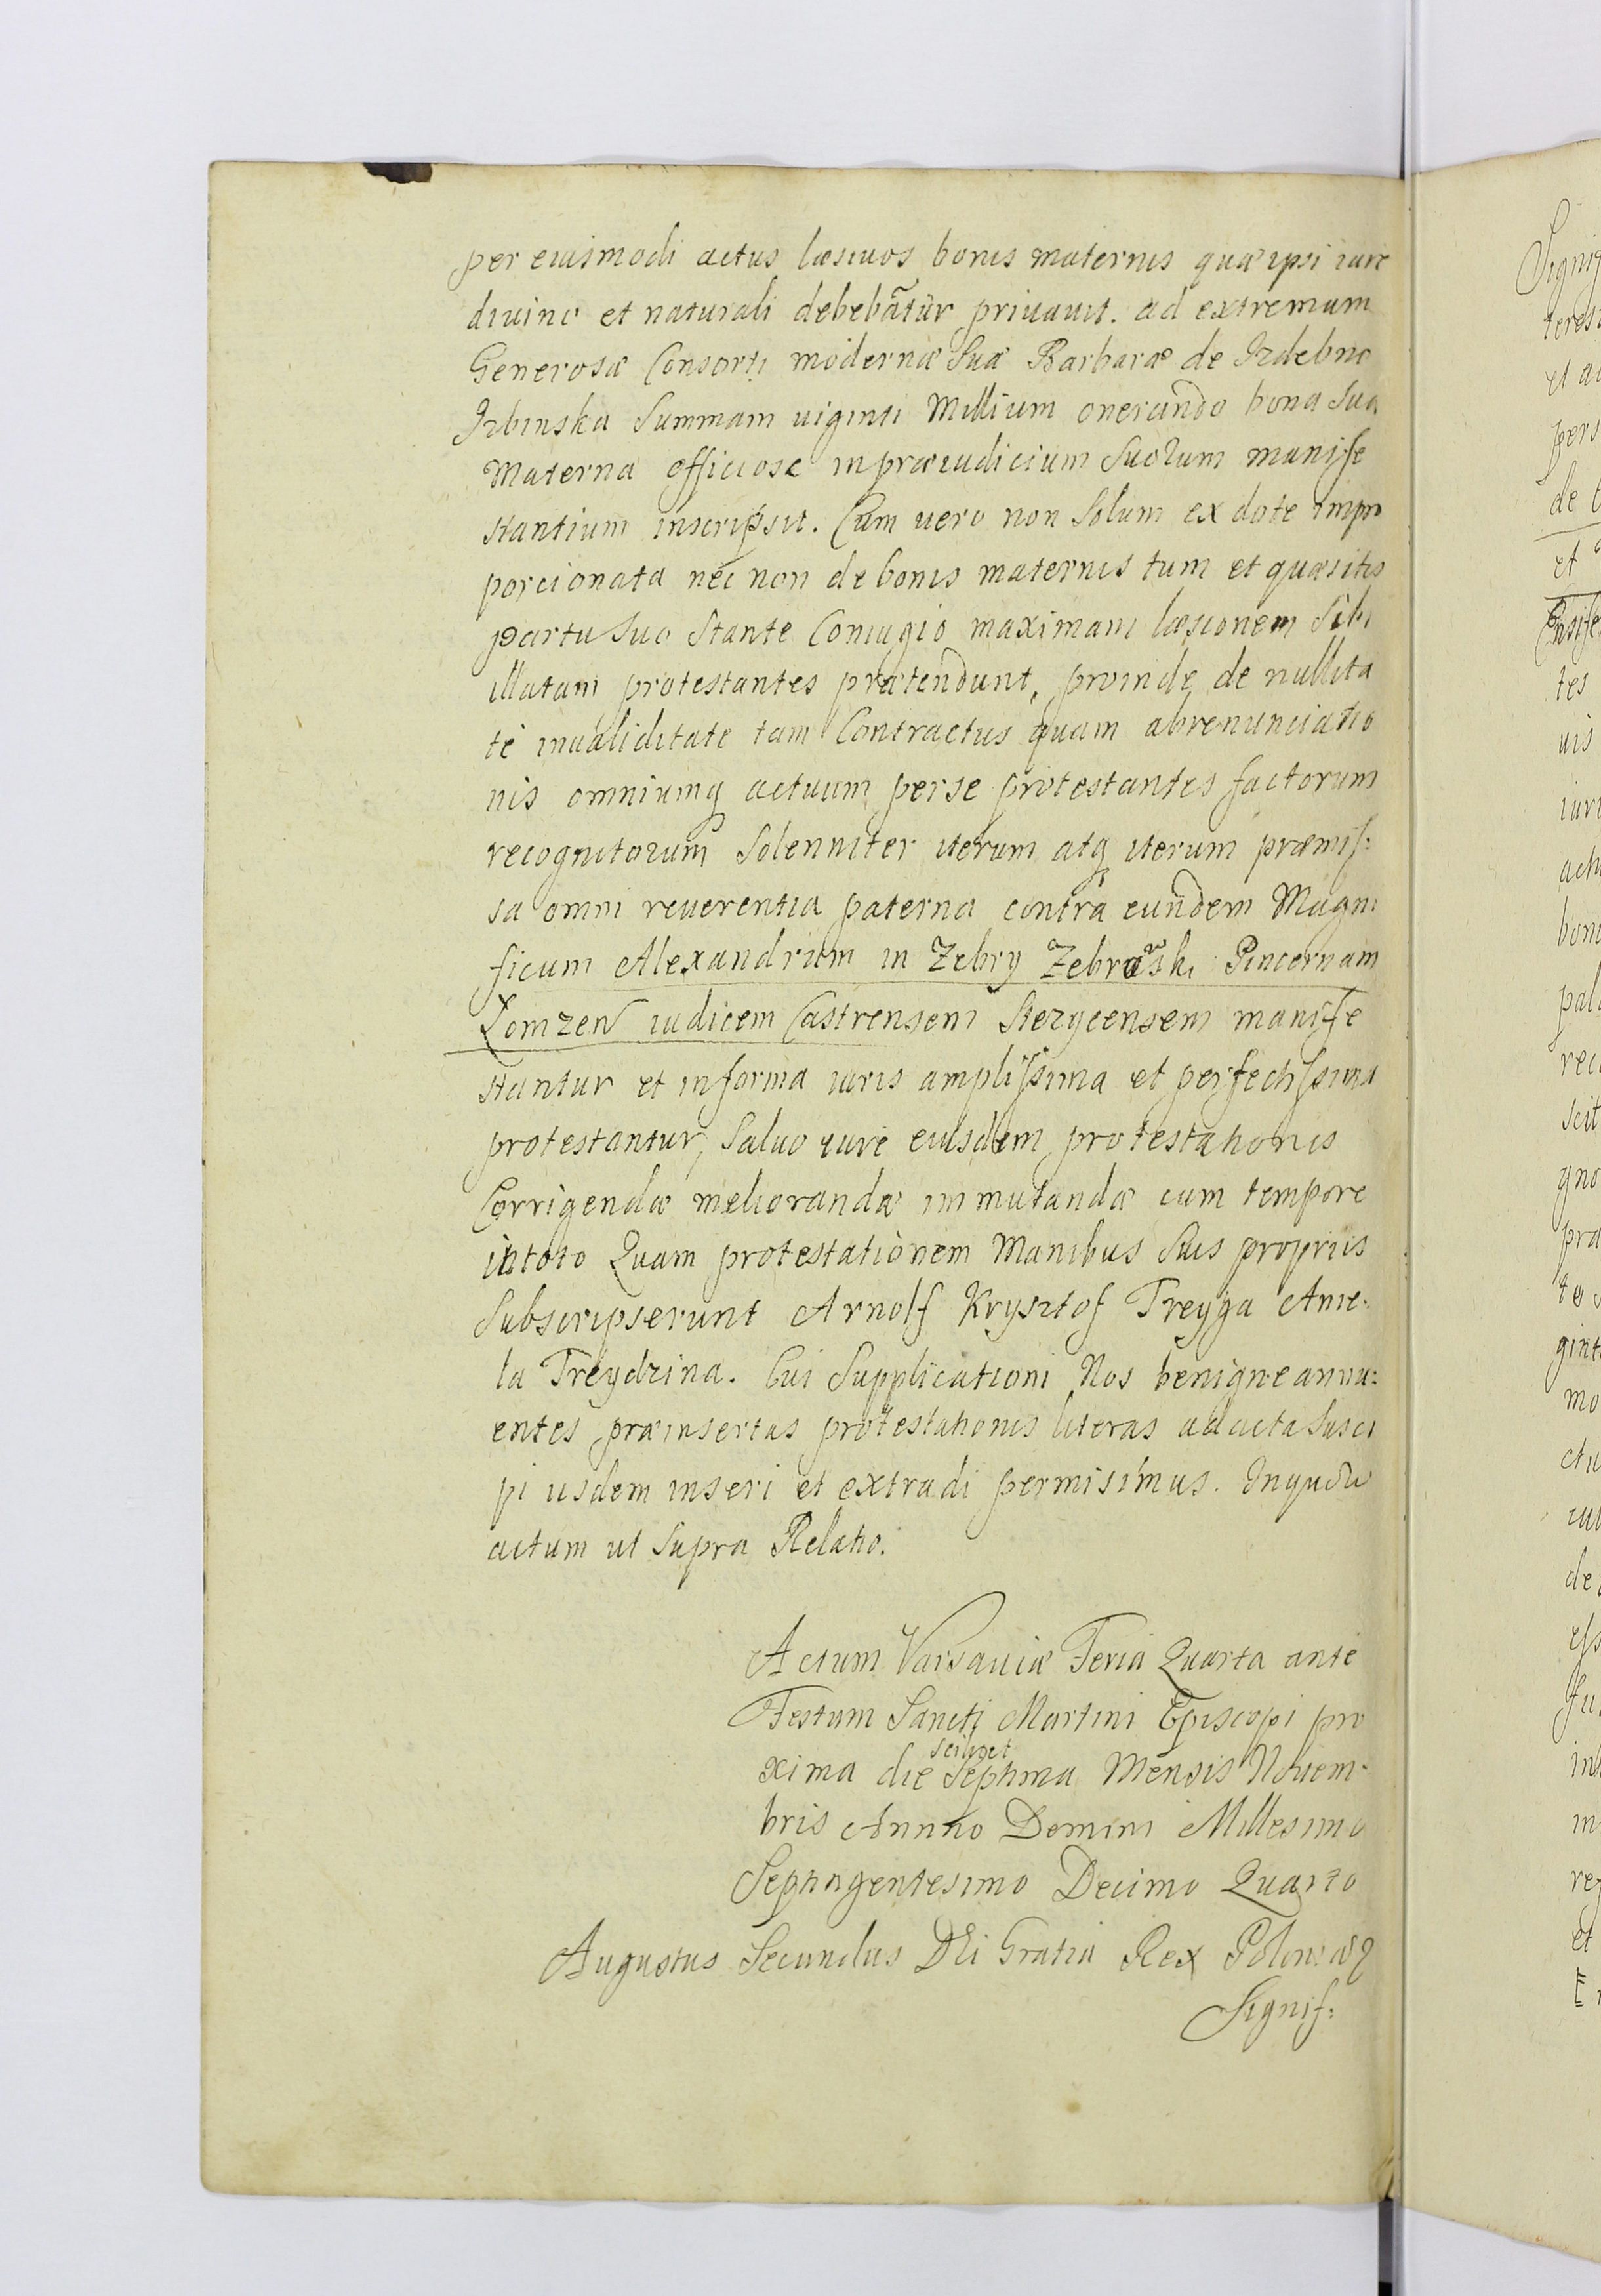 per eiusmodi actus læsiuos bonis maternis quæ ipsi iure
diuino et naturali debebãtur priuauit. ad extremum
Generosæ Consorti modernæ Suæ Barbaræ de Izdebno
Izbinska Summam uiginti Millium onerando bona Sua
Materna officiose in præiudicium Suorum manife
stantium inscripsit. Cum uero non Solum ex dote impro
porcionata nec non de bonis maternis tum et quæsitis
partu Suo Stante Coniugio maximam læsionem Sibi
illatam protestantes prætendunt, proinde de nullita
te inualiditate tam Contractus quam abrenunciatio
nis omniumq actuum per se protestantes factorum
recognitorum Solenniter iterum atq iterum præmis:
sa omni reuerentia paterna contra eundem Magni
ficum Alexandrum in Zebry Zebrowski Pincernam
Łomzen iudicem Castrensem Stezycensem manife
stantur et in forma iuris amplissima et perfectissima
protestantur, Saluo iure eiusdem protestationis
Corrigendæ meliorandæ immutandæ cum tempore
in toto Quam protestationem Manibus Suis propriis
Subscripserunt Arnolf Krysztof Treyga Anie:
la Treydzina. Cui Supplicationi Nos benigne annu:
entes præinsertas protestationis literas ad acta Susci
pi iisdem inseri et extradi permisimus. In quoru
actum ut Supra Relatio.
Actum Varsauiæ Feria Quarta ante
Festum Sancti Martini Episcopi pro
xima die scilicet Septima Mensis Nouem:
bris Annno Domini Millesimo
Septingentesimo Decimo Quarto
Augustus Secundus DEi Gratia Rex Poloniæ
Signif:
Signif
teres
et a
pers
de
et
tes
uis
iuri
bon
pala
rec
scit
gno
pra
gint
mo
ctu
de
in
et